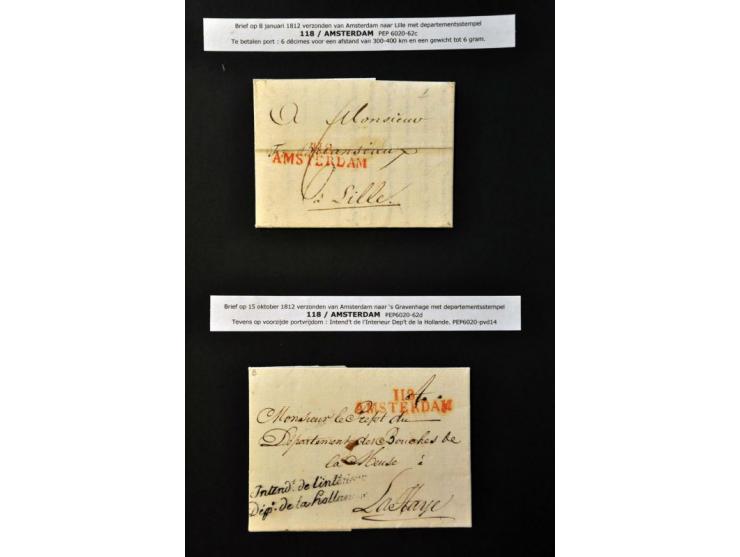 Brief op 8 januari 1812 verzonden van Amsterdam naar Lille met departementsstempel
118 / AMSTERDAM PEP 6020-62c
Te betalen port : 6 décimes voor een afstand van 300-400 km en een gewicht tot 6 gram.
A Monsieur
AMSTERDAM
à Lille.
Brief op 15 oktober 1812 verzonden van Amsterdam naar 's Gravenhage met departementsstempel
118 / AMSTERDAM PEP6020-62d
Tevens op voorzijde portvrijdom : Intend't de l'Interieur Dep't de la Hollande. PEP6020-pvd14
118
AMSTERDAM
Monsieur le Préfet du
Département des Bouches de
la Meuse à
Intend.t de l'intérieur
Dép.t de la hollande
La Haye